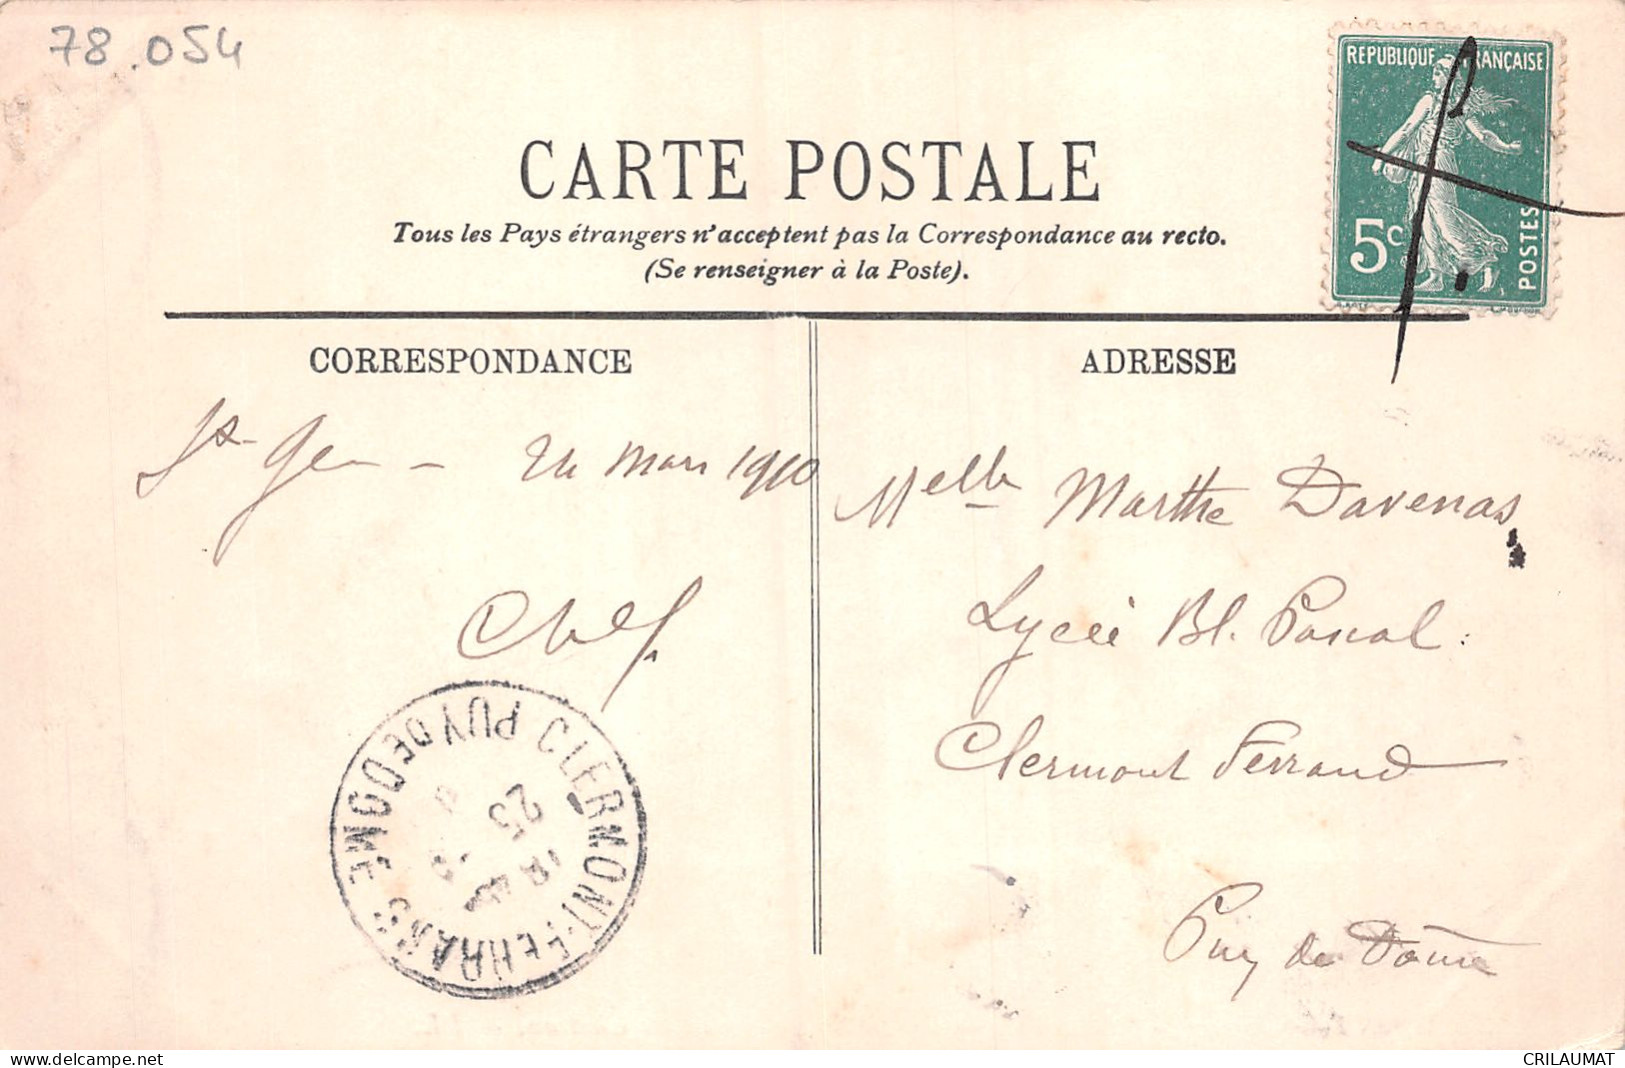 78.054
REPUBLIQUE FRANÇAISE
5c
POSTES
CARTE POSTALE
Tous les Pays étrangers n'acceptent pas la Correspondance au recto.
(Se renseigner à la Poste).
CORRESPONDANCE
ADRESSE
St Ger - 24 mars 1910
Melle Marthe Davenas
Lycée Bl. Pascal
Clermont Ferrand
Puy de Dôme
CLERMONT-FERRAND
PUY DE DOME
25
delcampe.net
CRILAUMAT